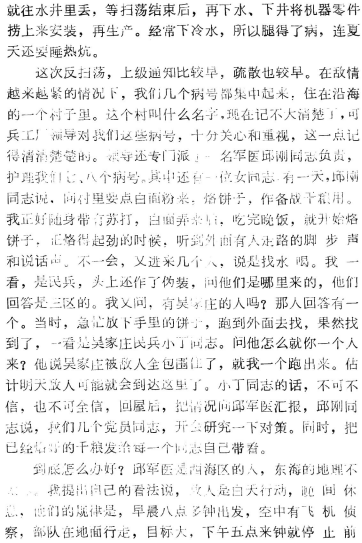 就往水井里丢，等扫荡结束后，再下水、下井将机器零件
捞上来安装，再生产。经常下冷水，所以腿得了病，连夏
天还要睡热炕。
这次反扫荡，上级通知比较早，疏散也较早。在敌情
越来越紧的情况下，我们几个病号都集中起来，住在沿海
的一个村子里。这个村叫什么名字，现在记不大清楚了，可
兵工厂领导对我们这些病号，十分关心和重视，这一点记
得清清楚楚的。领导还专门派了一名军医邱刚同志负责，
护理我们七、八个病号。其中还有一位女同志。有一天，邱刚
同志说，向村里要点白面粉来，烙饼子，作备战干粮用。
我正好随身带有苏打，白面弄来后，吃完晚饭，就开始烙
饼子，正烙得起劲的时候，听到外面有人走路的脚步声
和说话声。不一会，又进来几个人，说是找水喝。我一
看，是民兵，头上还作了伪装，问他们是哪里来的，他们
回答是三区的。我又问，有吴家庄的人吗？那人回答有一
个。当时，急忙放下手里的饼子，跑到外面去找，果然找
到了，一看是吴家庄民兵小丁同志。问他怎么就你一个人
来？他说吴家庄被敌人全包围住了，就我一个跑出来。估
计明天敌人可能就会到达这里了。小丁同志的话，不可不
信，也不可全信，回屋后，把情况向邱军医汇报，邱刚同
志说，我们几个党员同志，开会研究一下对策。同时，把
已经烙好的干粮发给每一个同志自己带着。
到底怎么办好？邱军医是西海区的人，东海的地理不
我提出自己的看法说，敌人是白天行动，晚间休
息，他们的规律是，早晨八点多钟出发，空中有飞机侦
察，部队在地面行走，目标大，下午五点来钟就停止前